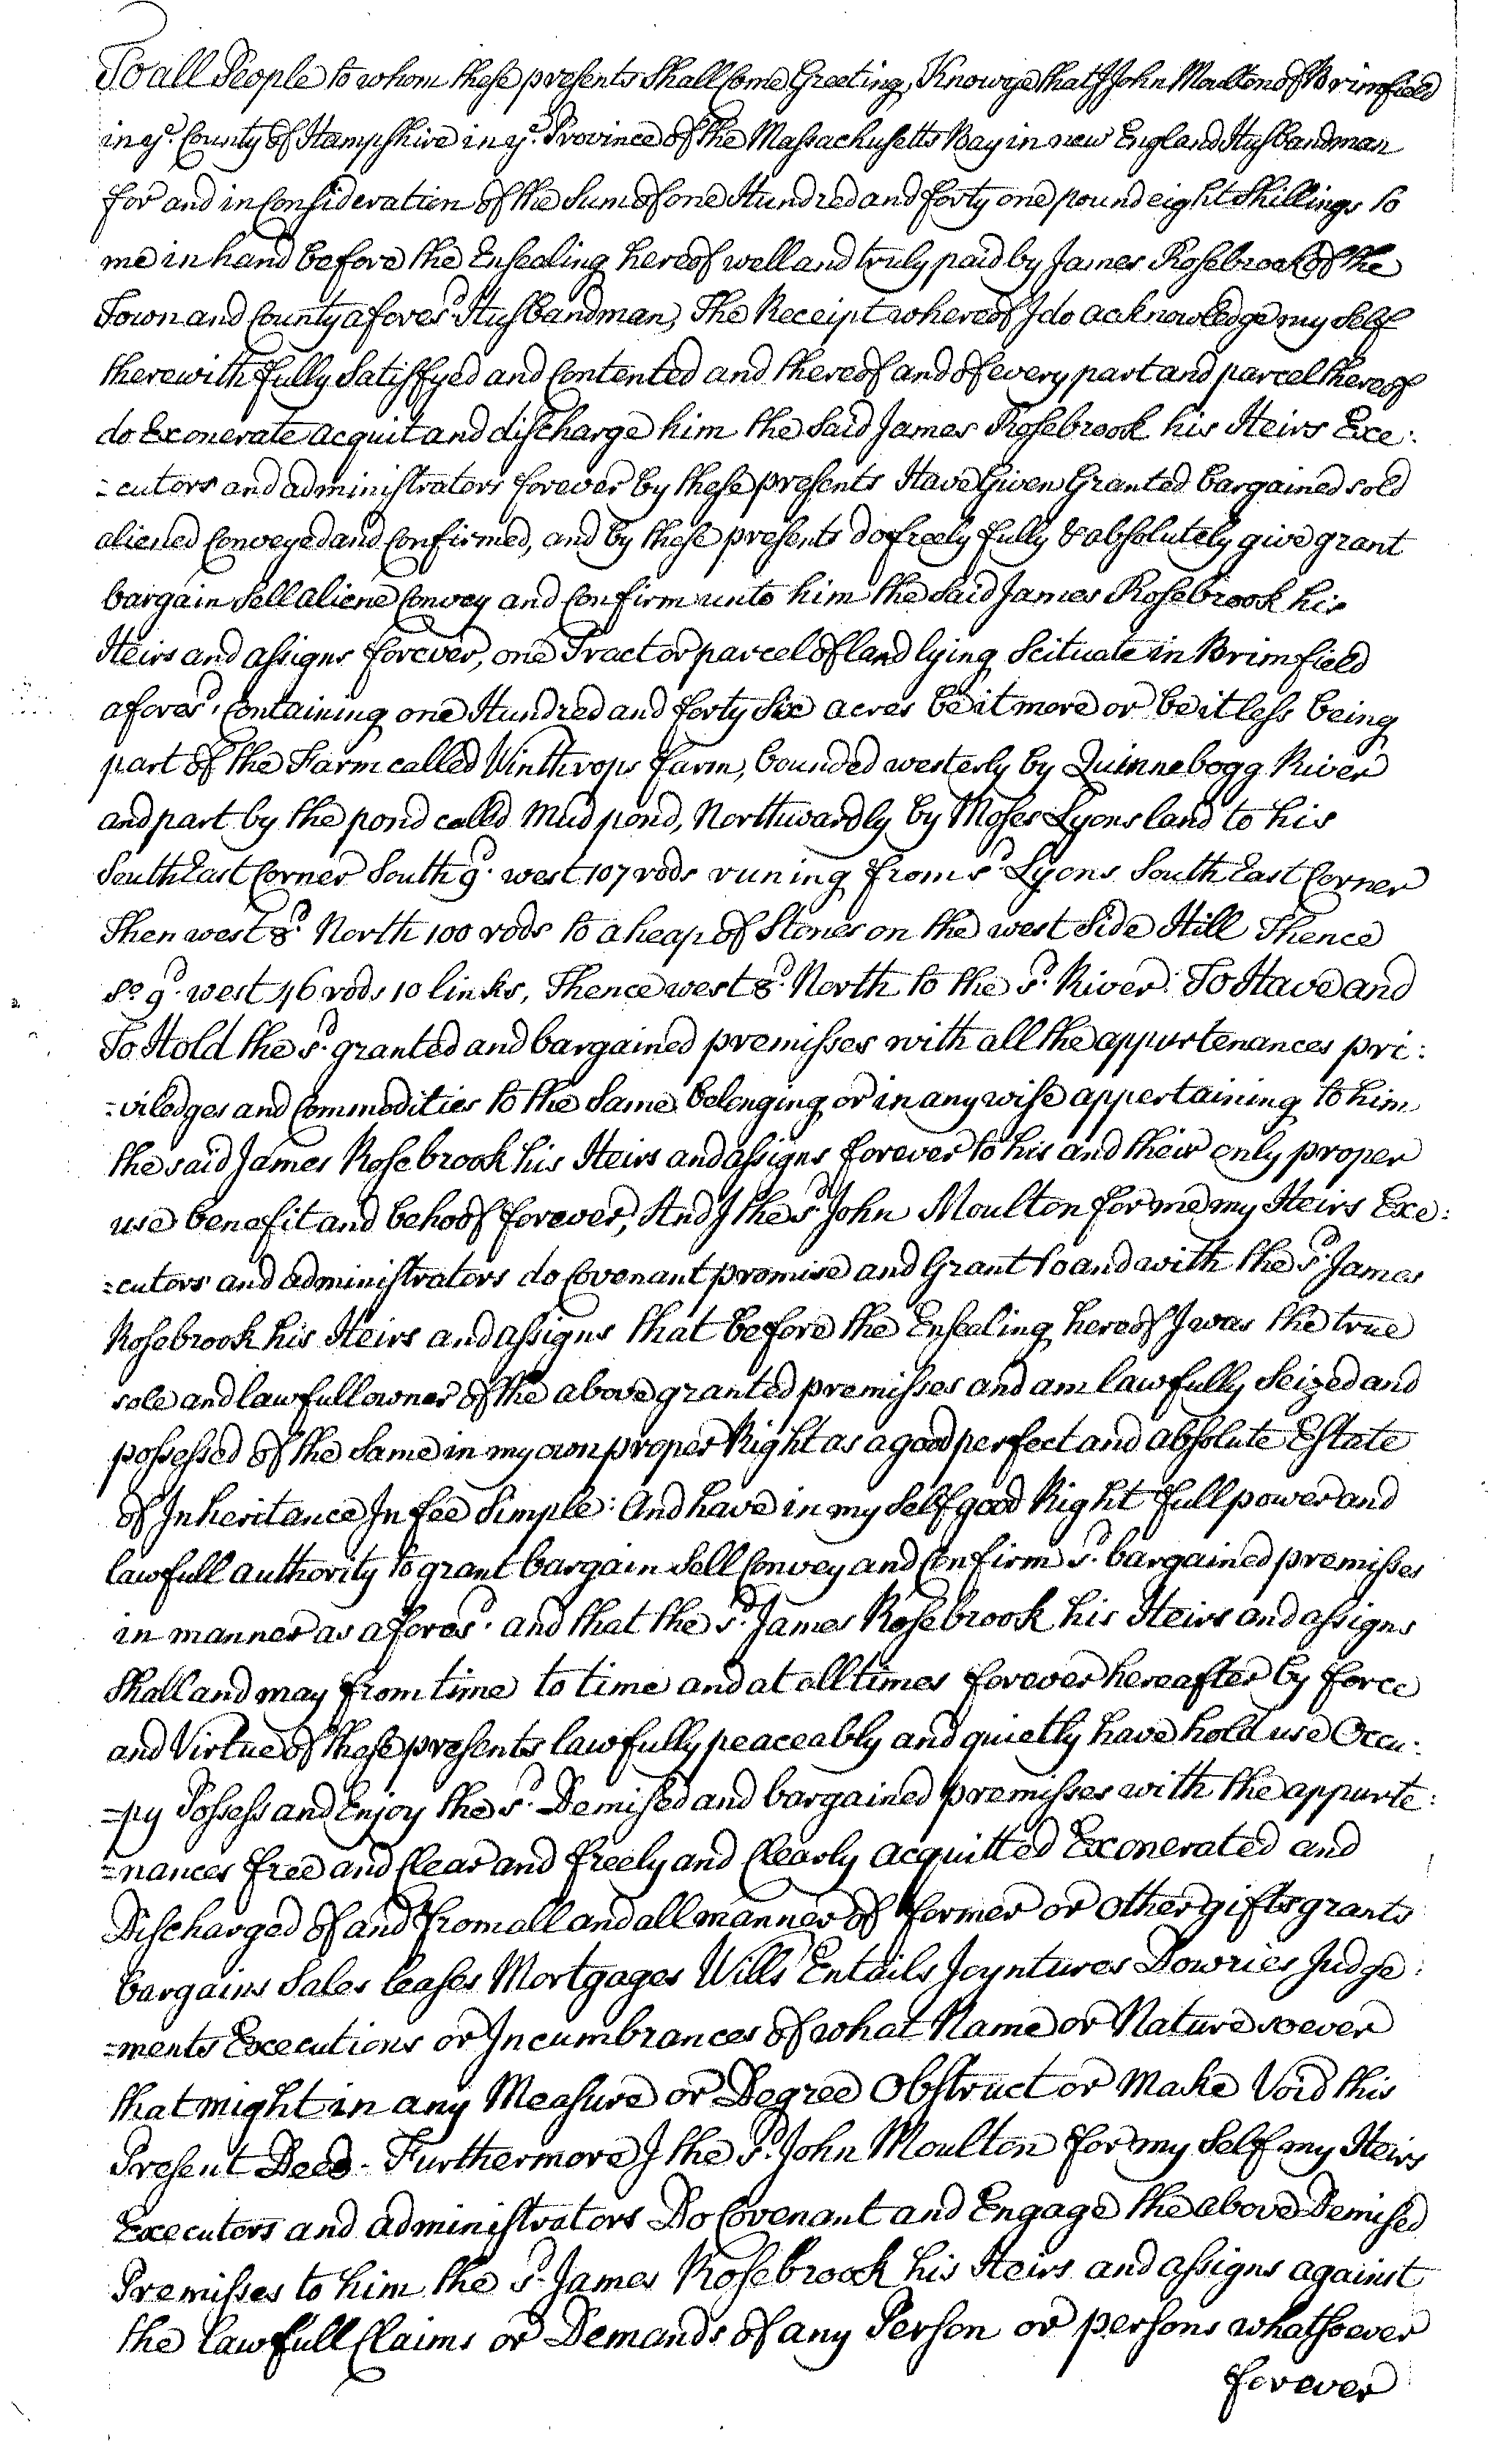 To all People to whom these presents Shall Come Greeting, Know ye that I John Moulton of Brimfield
in ye. County of Hampshire in ye. Province of the Massachusetts Bay in new England Husbandman
for and in Consideration of the Sum of one Hundred and forty one pound eight Shillings to
me in hand before the Ensealing hereof well and truly paid by James Rosebrook of the
Town and County afores.d Husbandman, The Receipt whereof I do acknowledge my Self
therewith fully Satisfyed and Contented and thereof and of every part and parcel thereof
do Exonerate acquit and discharge him the Said James Rosebrook his Heirs Exe:
=cutors and administrators forever by these presents Have Given Granted bargained sold
aliened Conveyed and Confirmed, and by these presents do freely fully & absolutely give grant
bargain Sell aliene Convey and Confirm unto him the Said James Rosebrook his
Heirs and assigns forever, one Tract or parcel of land lying Scituate in Brimfield
afores.d Containing one Hundred and forty Six acres be it more or be it less being
part of the Farm called Winthrops farm, bounded westerly by Quinnebogg River
and part by the pond called Mud pond, Northwardly by Moses Lyons land to his
South East Corner South 9.d west 107 rods runing from s.d Lyons South East Corner
Then west 8.d North 100 rods to a heap of Stones on the west Side Hill Thence
So 9.d west 46 rods 10 links, Thence west 8.d North to the s.d River. To Have and
To Hold the s.d granted and bargained premisses with all the appurtenances pri:
=viledges and Commodities to the Same belonging or in any wise appertaining to him
the said James Rosebrook his Heirs and assigns forever to his and their only proper
use benefit and behoof forever, And I the s.d John Moulton for me my Heirs Exe:
=cutors and administrators do Covenant promise and Grant to and with the s.d James
Rosebrook his Heirs and assigns that before the Ensealing hereof I was the true
sole and lawfull owner of the above granted premisses and am lawfully Seized and
possessed of the Same in my own proper Right as a good perfect and absolute Estate
of Inheritance In fee Simple: And have in my Self good Right full power and
lawfull authority to grant bargain Sell Convey and Confirm s.d bargained premisses
in manner as afores.d and that the s.d James Rosebrook his Heirs and assigns
Shall and may from time to time and at all times forever hereafter by force
and Virtue of these presents lawfully peaceably and quietly have hold use Occu:
=py Possess and Enjoy the s.d Demised and bargained premisses with the appurte:
=nances free and Clear and freely and Clearly acquitted Exonerated and
Discharged of and from all and all manner of former or other gifts grants
bargains Sales leases Mortgages Wills Entails Joyntures Dowries Judge:
=ments Executions or Incumbrances of what Name or Nature soever
that might in any Measure or Degree Obstruct or Make Void this
Present Deed - Furthermore I the s.d John Moulton for my Self my Heirs
Executors and administrators Do Covenant and Engage the above Demised
Premisses to him the s.d James Rosebrook his Heirs and assigns against
the lawfull Claims or Demands of any Person or persons whatsoever
forever